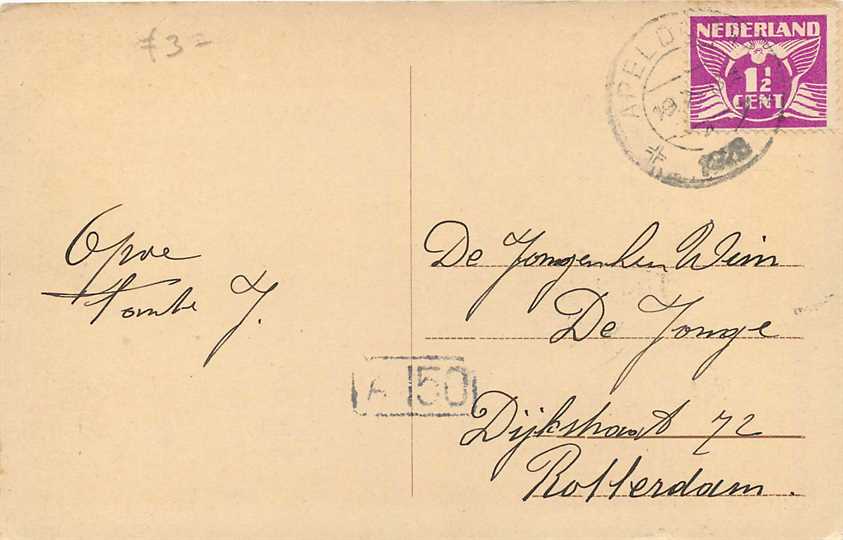 f3=
NEDERLAND
1½
CENT
APELDO
1928
Opoe
Tante J.
De Jongenheer Wim
De Jonge
A 150
Dijkstraat 72
Rotterdam.